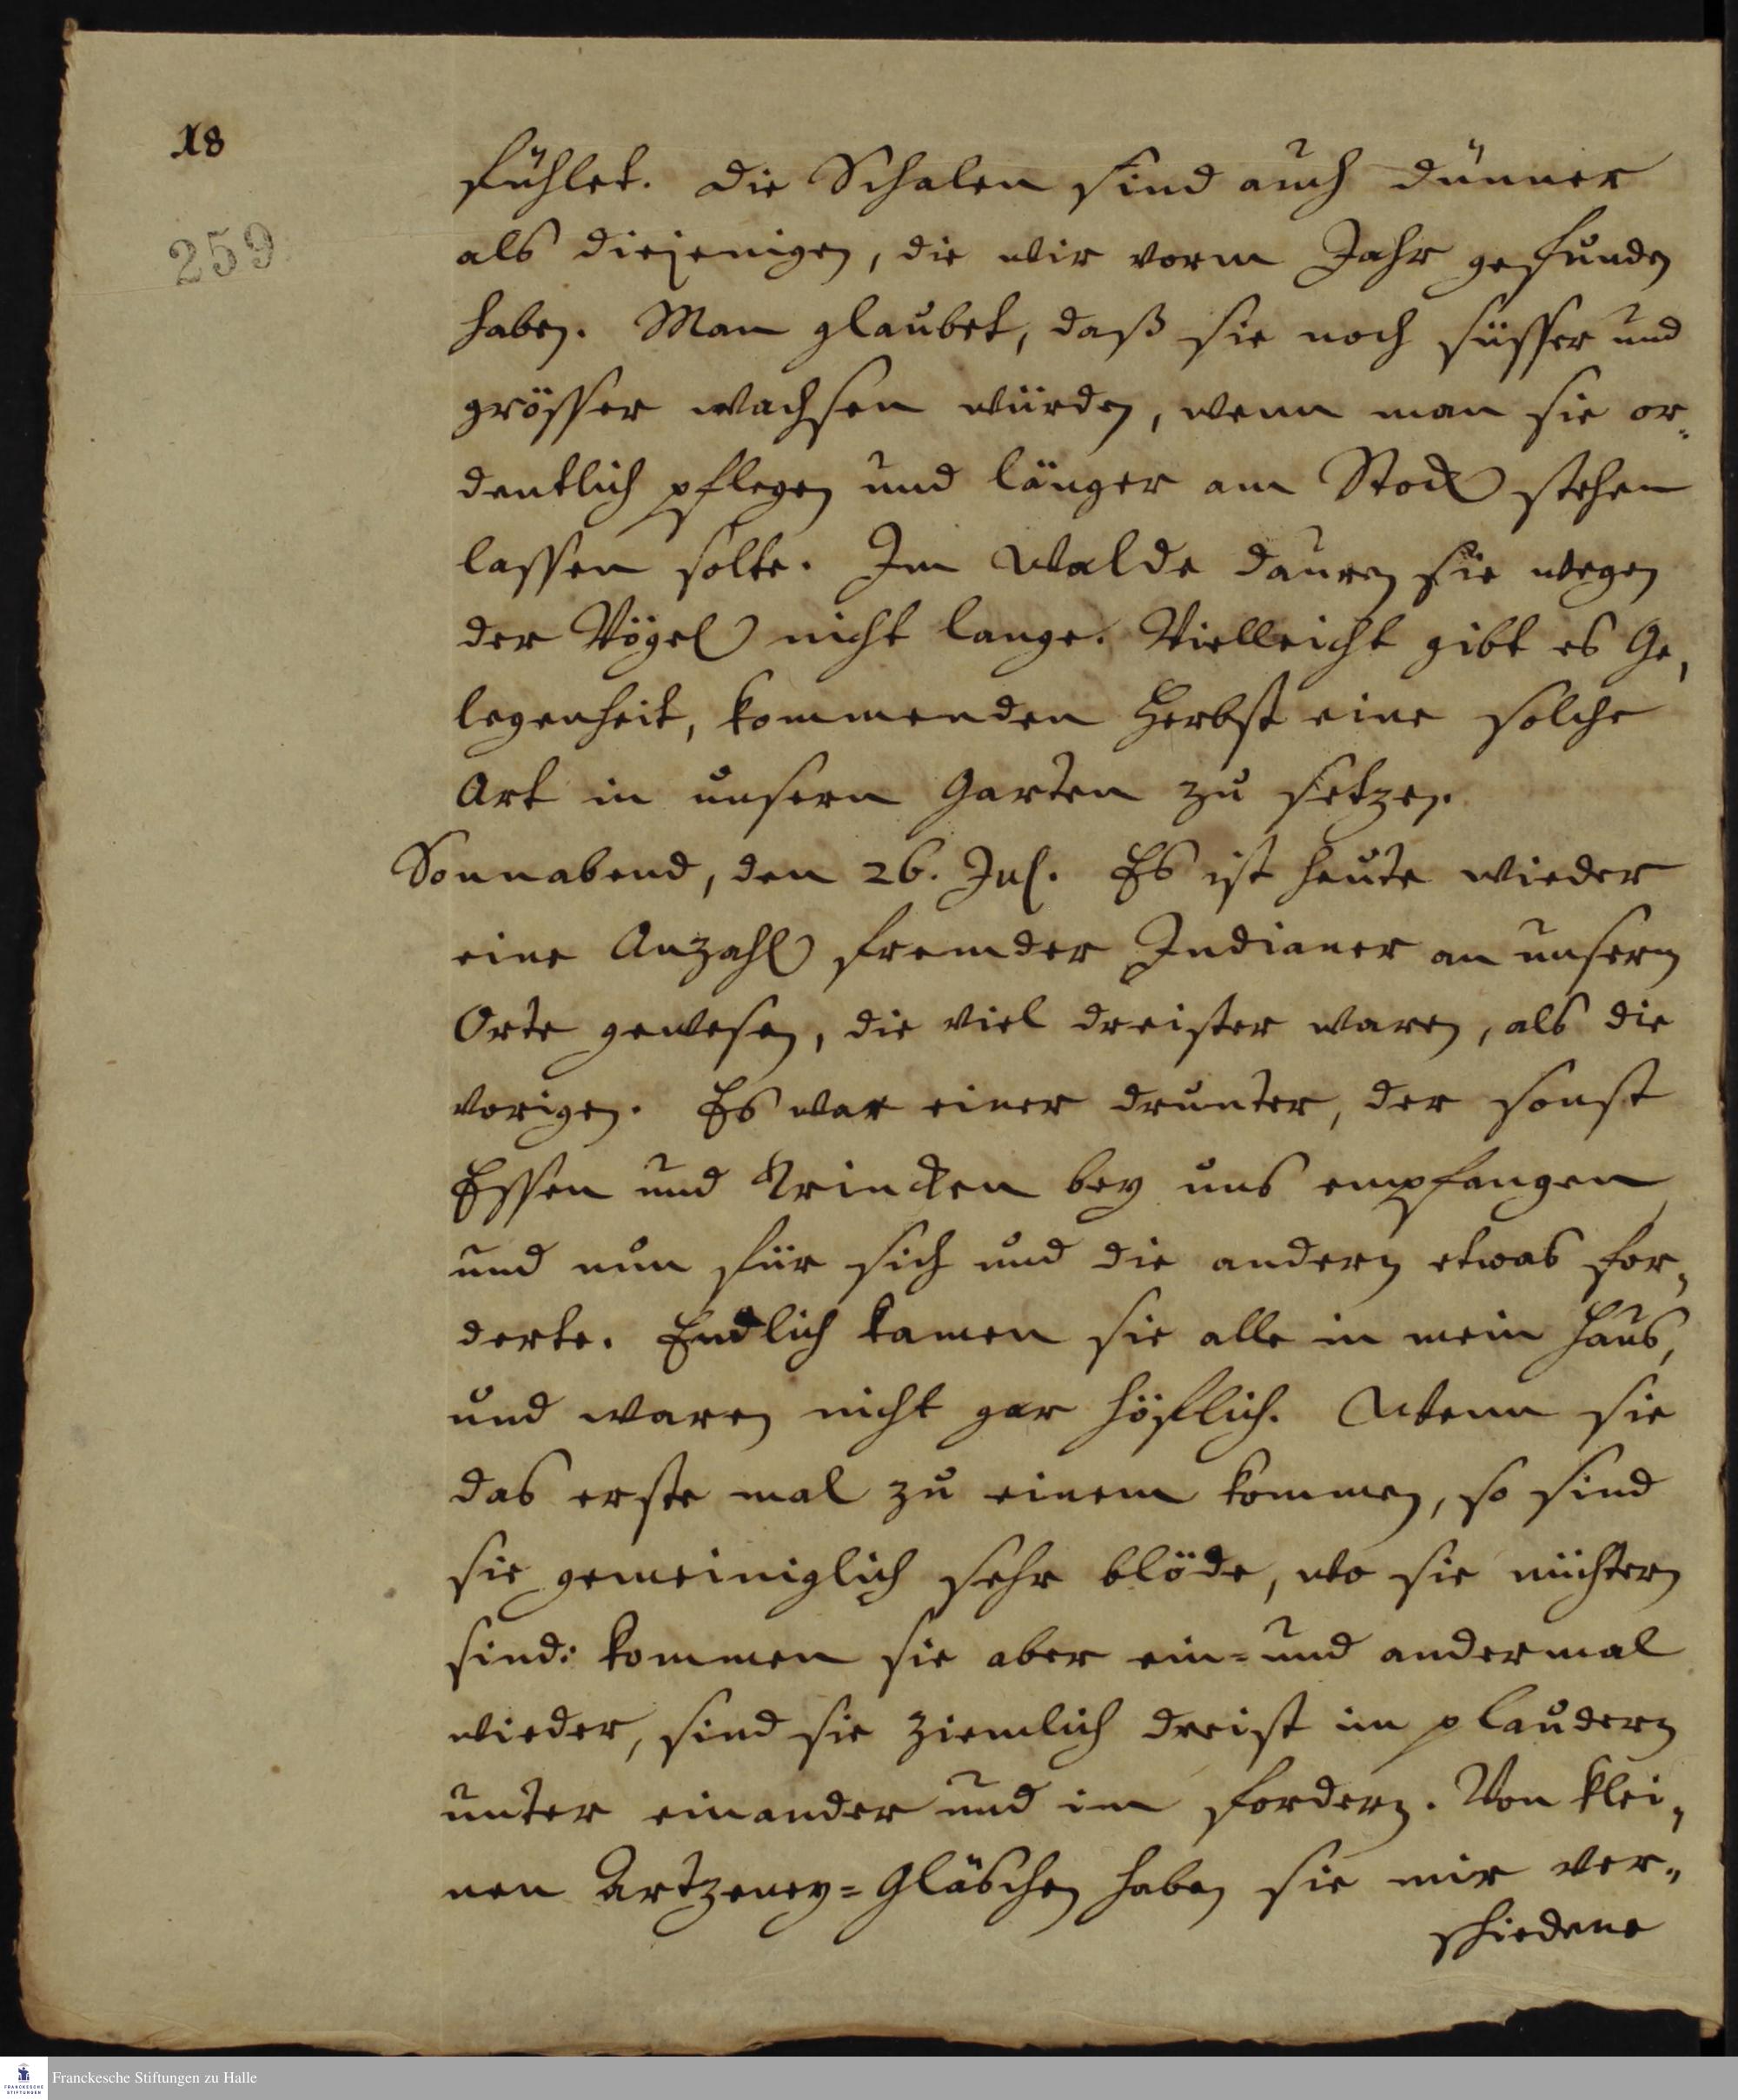 18
259
fühlet. Die Schalen sind auch dünner
als diejenigen, die wir vorm Jahr gefunden
haben. Man glaubet, daß sie noch süsser und
grösser wachsen würden, wenn man sie or-
dentlich pflegen und länger am Stock stehen
lassen solte. Im Walde dauren sie wegen
der Vögel nicht lange. Vielleicht gibt es Ge-
legenheit, kommenden Herbst eine solche
Art in unsern Garten zu setzen.
Sonnabend, den 26. Jul. Es ist heute wieder
eine Anzahl fremder Indianer an unserm
Orte gewesen, die viel dreister waren, als die
vorigen. Es war einer drunter, der sonst
Essen und Trincken bey uns empfangen
und nun für sich und die andern etwas for-
derte. Endlich kamen sie alle in mein Haus,
und waren nicht gar höflich. Wenn sie
das erste mal zu einem kommen, so sind
sie gemeiniglich sehr blöde, wo sie nüchtern
sind: kommen sie aber ein- und andermal
wieder, sind sie ziemlich dreist im plaudern
unter einander und im fordern. Von klei-
nen Artzeney-Gläschen haben sie mir ver-
schiedene
Franckesche Stiftungen zu Halle